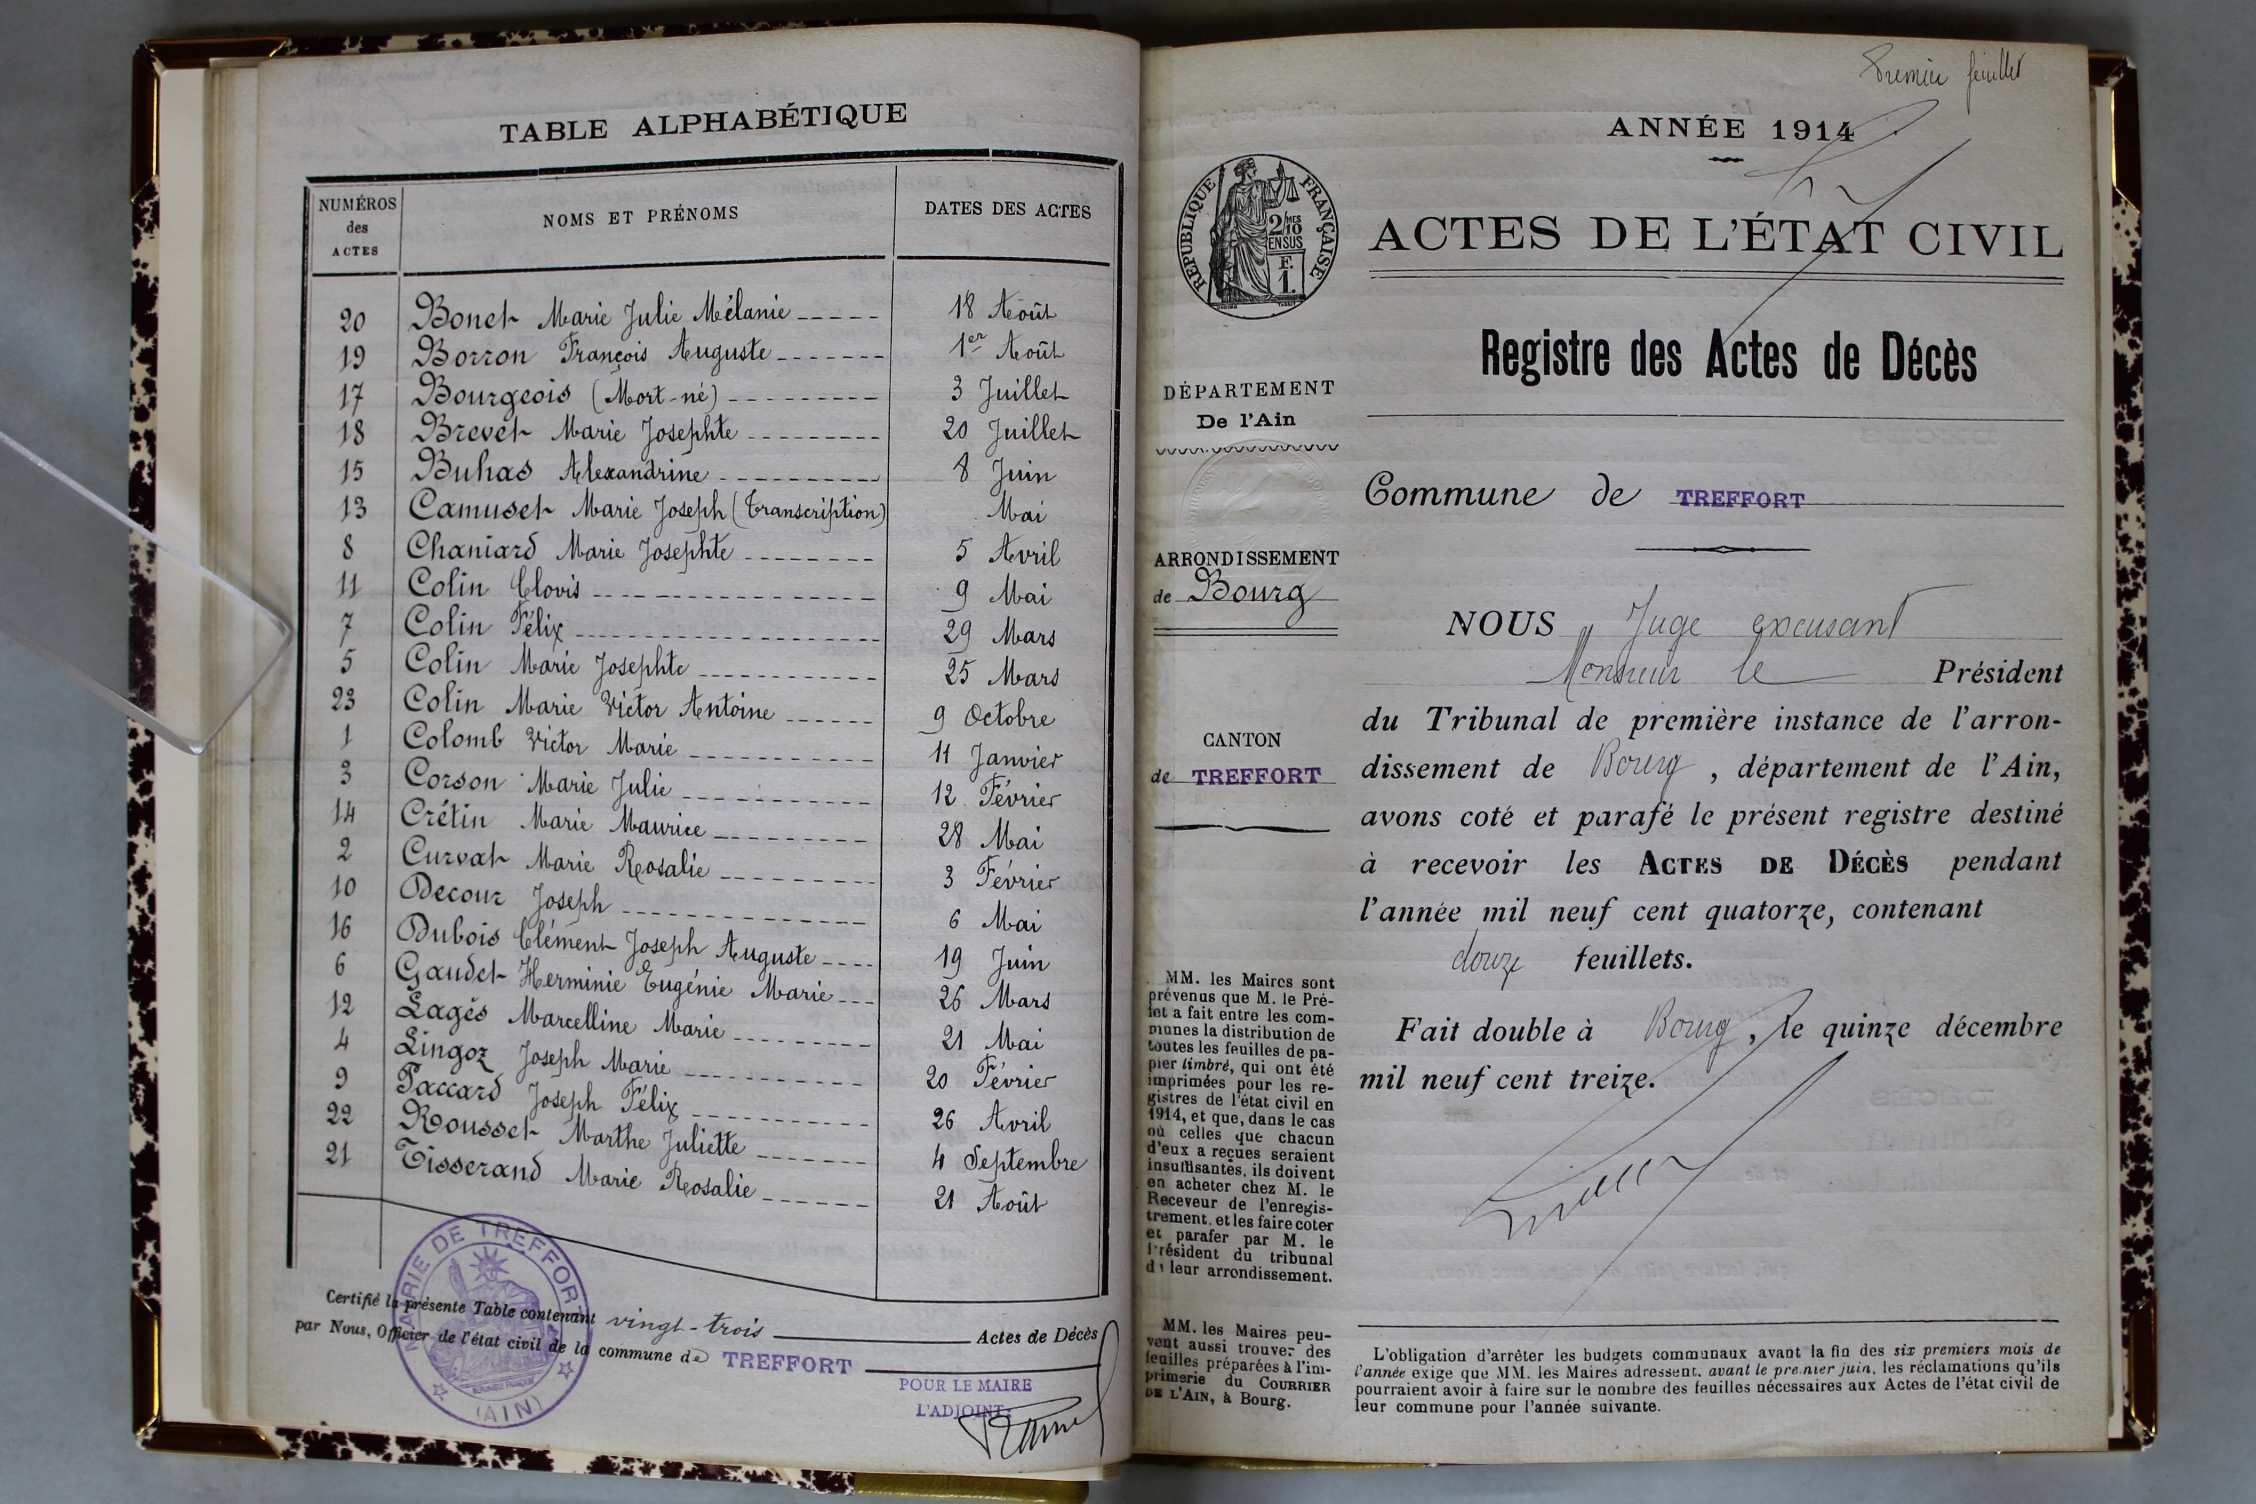 TABLE ALPHABÉTIQUE
NUMÉROS des ACTES
NOMS ET PRÉNOMS
DATES DES ACTES
20 Bonet Marie Julie Mélanie 18 Août
19 Borron François Auguste 1er Août
17 Bourgeois (Mort-né) 3 Juillet
18 Brevet Marie Josephte 20 Juillet
15 Buhas Alexandrine 8 Juin
13 Camuset Marie Joseph (Transcription) Mai
8 Chaniard Marie Josephte 5 Avril
11 Colin Clovis 9 Mai
7 Colin Félix 29 Mars
5 Colin Marie Josephte 25 Mars
23 Colin Marie Victor Antoine 9 Octobre
1 Colomb Victor Marie 11 Janvier
3 Corson Marie Julie 12 Février
14 Crétin Marie Maurice 28 Mai
2 Curvat Marie Rosalie 3 Février
10 Decour Joseph 6 Mai
16 Dubois Clément Joseph Auguste 19 Juin
6 Gaudet Herminie Eugénie Marie 26 Mars
12 Lagés Marcelline Marie 21 Mai
4 Lingoz Joseph Marie 20 Février
9 Paccard Joseph Félix 26 Avril
22 Rousset Marthe Juliette 4 Septembre
21 Tisserand Marie Rosalie 21 Août
MAIRIE DE TREFFORT
(AIN)
Certifié la présente Table contenant vingt-trois Actes de Décès
par Nous, Officier de l'état civil de la commune de TREFFORT
POUR LE MAIRE
L'ADJOINT:
Premier feuillet
ANNÉE 1914
RÉPUBLIQUE FRANÇAISE
2/10MES
EN SUS
F.
1.
ACTES DE L'ÉTAT CIVIL
Registre des Actes de Décès
DÉPARTEMENT
De l'Ain
Commune de TREFFORT
ARRONDISSEMENT
de Bourg
CANTON
de TREFFORT
NOUS Juge excusant
Monsieur le Président
du Tribunal de première instance de l'arron-
dissement de Bourg, département de l'Ain,
avons coté et parafé le présent registre destiné
à recevoir les ACTES DE DÉCÈS pendant
l'année mil neuf cent quatorze, contenant
douze feuillets.
Fait double à Bourg, le quinze décembre
mil neuf cent treize.
MM. les Maires sont
prévenus que M. le Pré-
fet a fait entre les com-
munes la distribution de
toutes les feuilles de pa-
pier timbré, qui ont été
imprimées pour les re-
gistres de l'état civil en
1914, et que, dans le cas
où celles que chacun
d'eux a reçues seraient
insuffisantes, ils doivent
en acheter chez M. le
Receveur de l'enregis-
trement, et les faire coter
et parafer par M. le
Président du tribunal
de leur arrondissement.
MM. les Maires peu-
vent aussi trouver des
feuilles préparées à l'im-
primerie du COURRIER
DE L'AIN, à Bourg.
L'obligation d'arrêter les budgets communaux avant la fin des six premiers mois de
l'année exige que MM. les Maires adressent, avant le premier juin, les réclamations qu'ils
pourraient avoir à faire sur le nombre des feuilles nécessaires aux Actes de l'état civil de
leur commune pour l'année suivante.